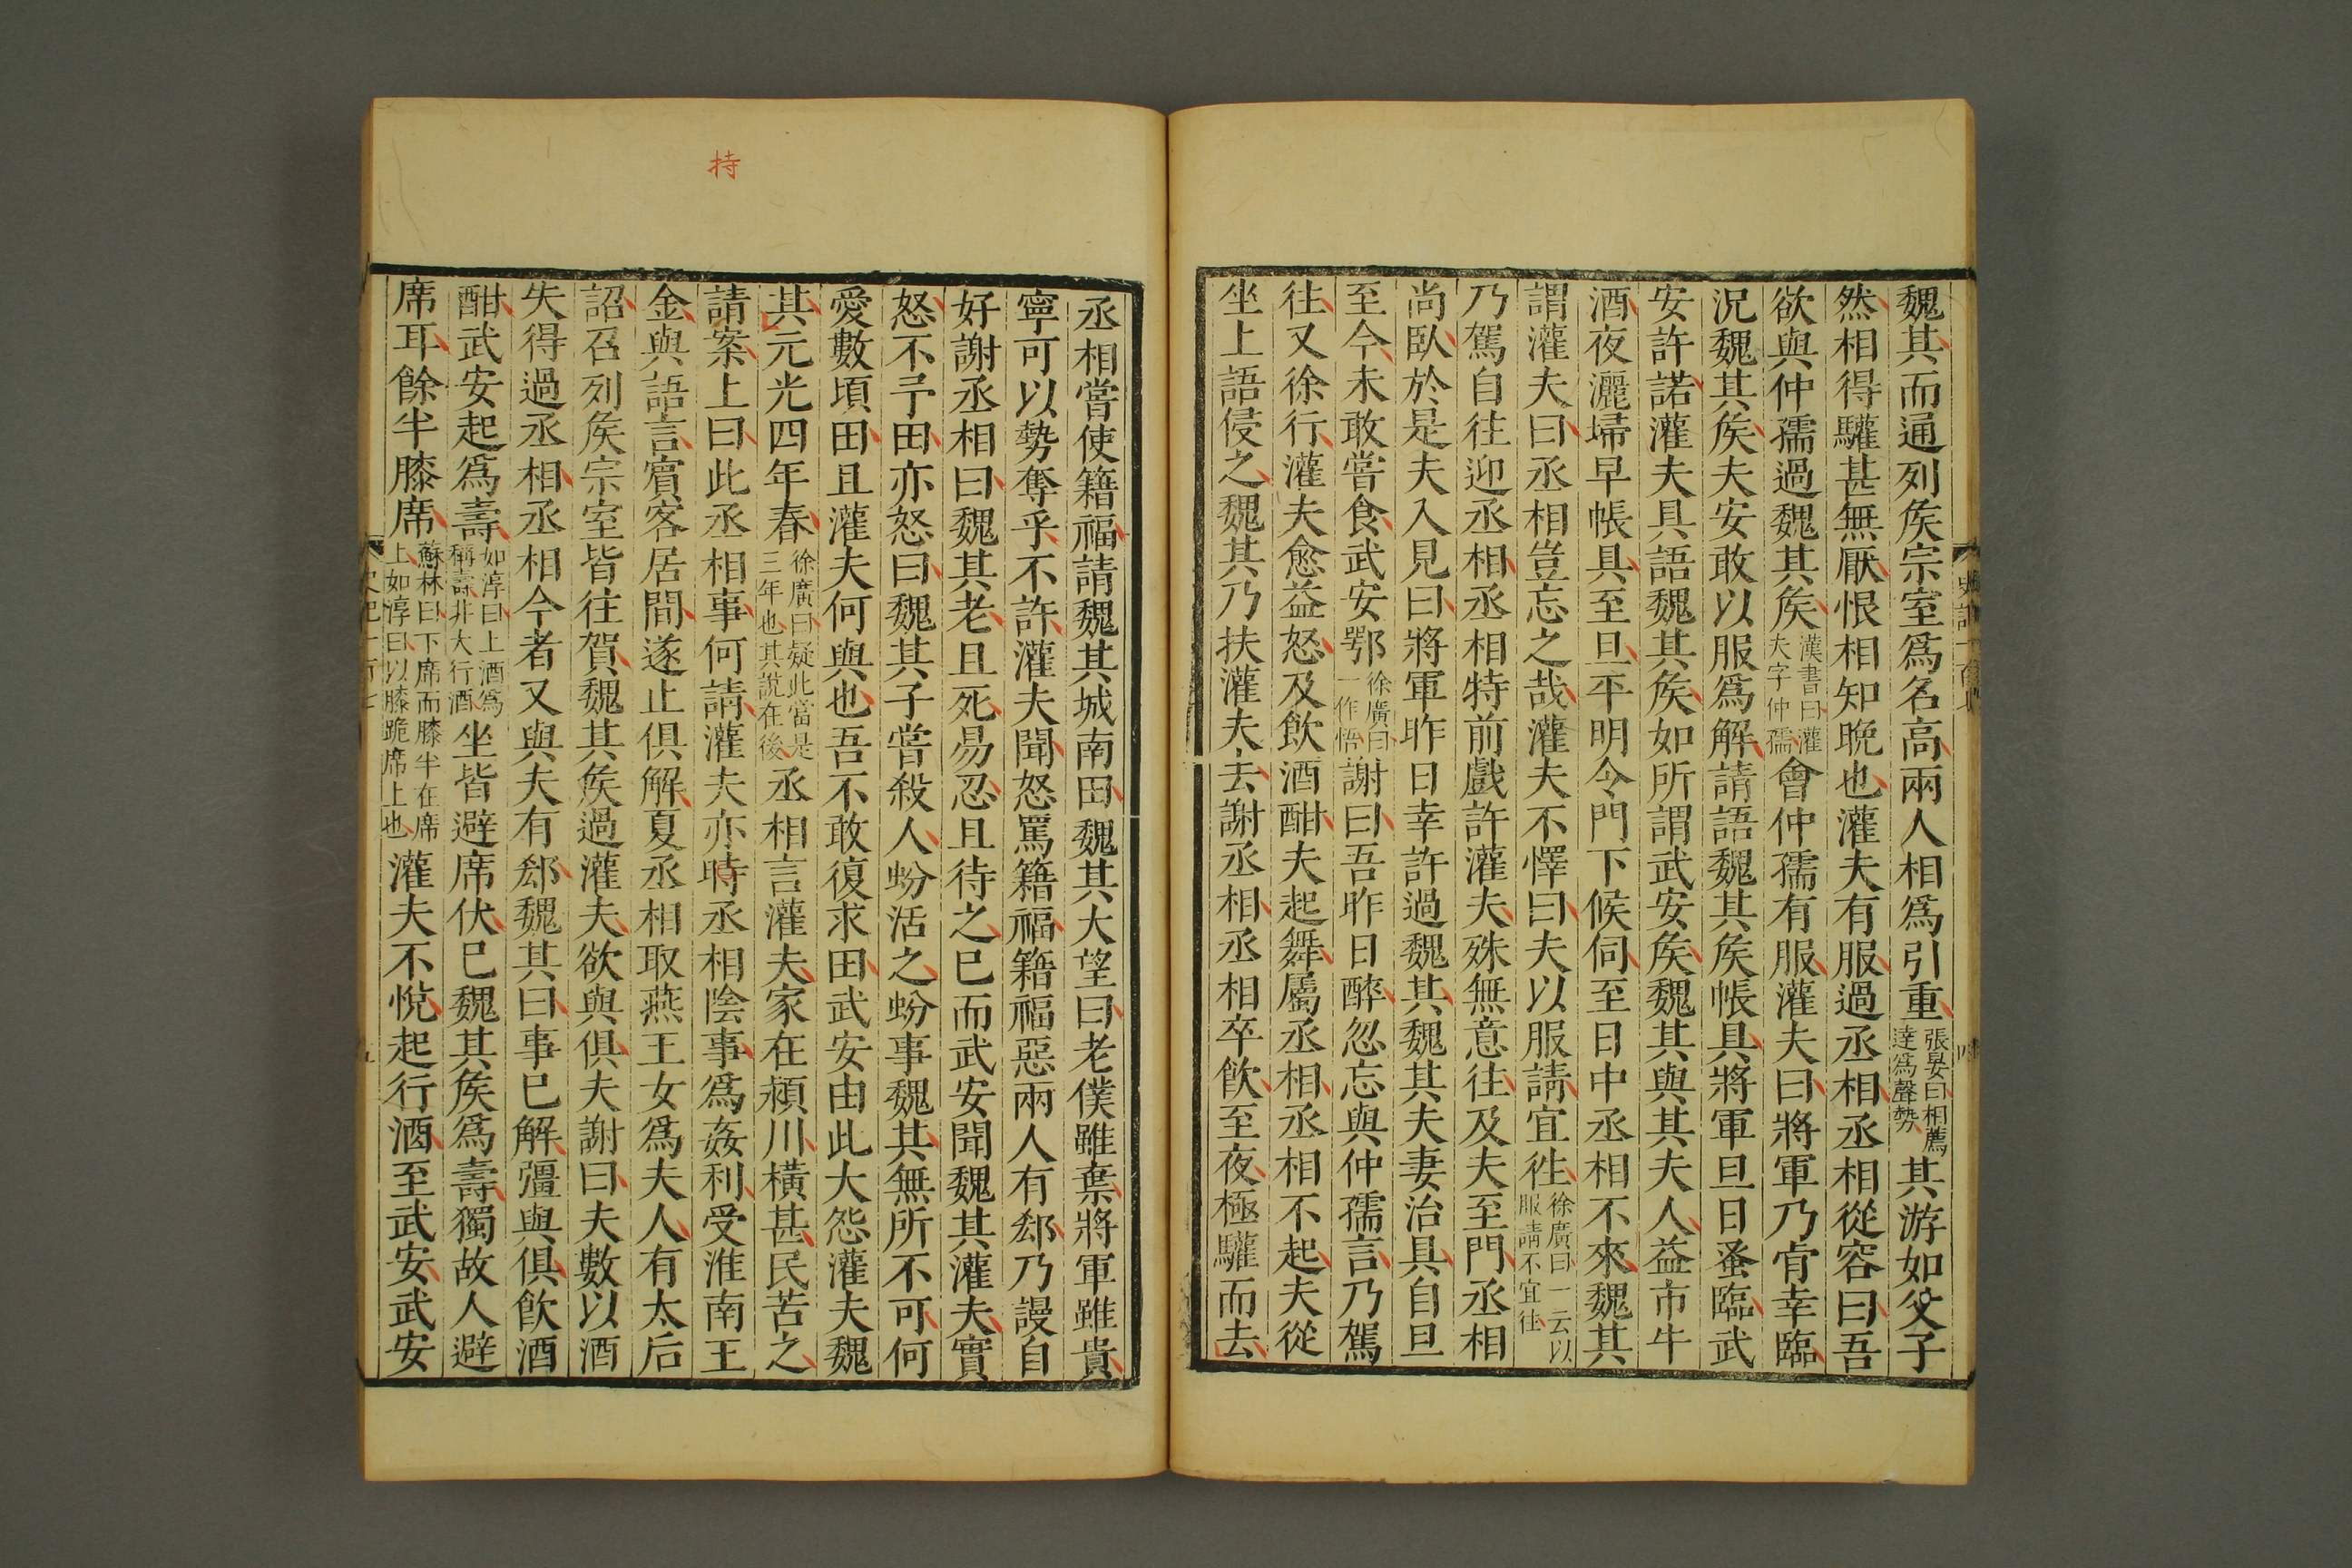 魏其而通列矦宗室爲名高兩人相爲引重張晏曰相薦達爲聲勢其游如父子
然相得驩甚無厭恨相知晚也灌夫有服過丞相丞相從容曰吾
欲與仲孺過魏其矦漢書曰灌夫字仲孺會仲孺有服灌夫曰將軍乃肯幸臨
況魏其矦夫安敢以服爲解請語魏其矦帳具將軍旦日蚤臨武
安許諾灌夫具語魏其矦如所謂武安矦魏其與其夫人益市牛
酒夜灑埽早帳具至旦平明令門下候伺至日中丞相不來魏其
謂灌夫曰丞相豈忘之哉灌夫不懌曰夫以服請宜往徐廣曰一云以服請不宜往
乃駕自往迎丞相丞相特前戲許灌夫殊無意往及夫至門丞相
尚臥於是夫入見曰將軍昨日幸許過魏其魏其夫妻治具自旦
至今未敢嘗食武安鄂徐廣曰一作悟謝曰吾昨日醉忽忘與仲孺言乃駕
往又徐行灌夫愈益怒及飲酒酣夫起舞屬丞相丞相不起夫從
坐上語侵之魏其乃扶灌夫去謝丞相丞相卒飲至夜極驩而去
丞相嘗使籍福請魏其城南田魏其大望曰老僕雖棄將軍雖貴
寧可以勢奪乎不許灌夫聞怒罵籍福籍福惡兩人有郄乃謾自
好謝丞相曰魏其老且死易忍且待之已而武安聞魏其灌夫實
怒不予田亦怒曰魏其子嘗殺人蚡活之蚡事魏其無所不可何
愛數頃田且灌夫何與也吾不敢復求田武安由此大怨灌夫魏
其元光四年春徐廣曰疑此當是三年也其說在後丞相言灌夫家在潁川橫甚民苦之
請案上曰此丞相事何請灌夫亦時丞相陰事爲姦利受淮南王
金與語言賓客居間遂止俱解夏丞相取燕王女爲夫人有太后
詔召列矦宗室皆往賀魏其矦過灌夫欲與俱夫謝曰夫數以酒
失得過丞相丞相今者又與夫有郄魏其曰事已解彊與俱飲酒
酣武安起爲壽如淳曰上酒爲稱壽非大行酒坐皆避席伏已魏其矦爲壽獨故人避
席耳餘半膝席蘇林曰下席而膝半在席上如淳曰以膝跪席上也灌夫不悅起行酒至武安武安
持